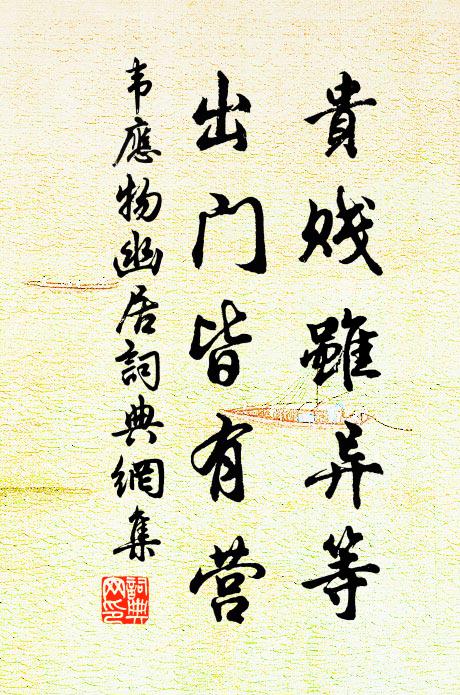 貴贱雖异等
出门皆有营
韦應物幽居詞典網集
詞典网印